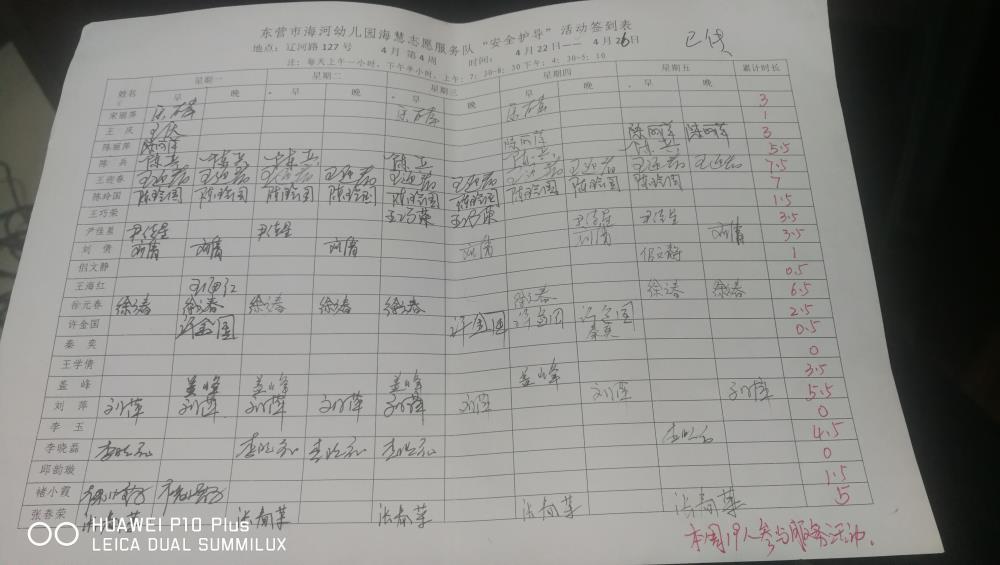 东营市海河幼儿园海慧志愿服务队“安全护导”活动签到表
地点：辽河路127号 4月 第4周 时间： 4月22日—— 4月26日
注：每天上午一小时，下午半小时，上午：7：30-8：30下午：4：30-5：10
姓名 星期一 星期二 星期三 星期四 星期五 累计时长
早 晚 早 晚 早 晚 早 晚 早 晚
宋丽萍 3
王庆 王庆 1
陈丽萍 陈丽萍 陈丽萍 陈丽萍 陈丽萍 3
陈兵 陈兵 陈兵 陈兵 陈兵 陈兵 陈兵 5.5
王迎春 7.5
陈玲国 陈玲国 陈玲国 陈玲国 陈玲国 陈玲国 陈玲国 陈玲国 陈玲国 陈玲国 7
王巧荣 王巧荣 王巧荣 1.5
尹佳星 尹佳星 尹佳星 尹佳星 尹佳星 3.5
刘倩 刘倩 刘倩 刘倩 刘倩 刘倩 刘倩 3.5
倪文静 倪文静 1
王海红 王海红 0.5
徐元春 徐元春 徐元春 徐元春 徐元春 徐元春 徐元春 徐元春 徐元春 6.5
许金国 许金国 许金国 许金国 许金国 2.5
秦奕 秦奕 0.5
王学倩 0
盖峰 盖峰 盖峰 盖峰 盖峰 3.5
刘萍 刘萍 刘萍 刘萍 刘萍 刘萍 刘萍 刘萍 刘萍 5.5
李玉 0
李晓磊 李晓磊 李晓磊 李晓磊 李晓磊 李晓磊 4.5
邱韵璇 0
褚小霞 褚小霞 褚小霞 1.5
张春荣 张春荣 张春荣 张春荣 张春荣 张春荣 5
本周19人参与服务活动。
HUAWEI P10 Plus
LEICA DUAL SUMMILUX